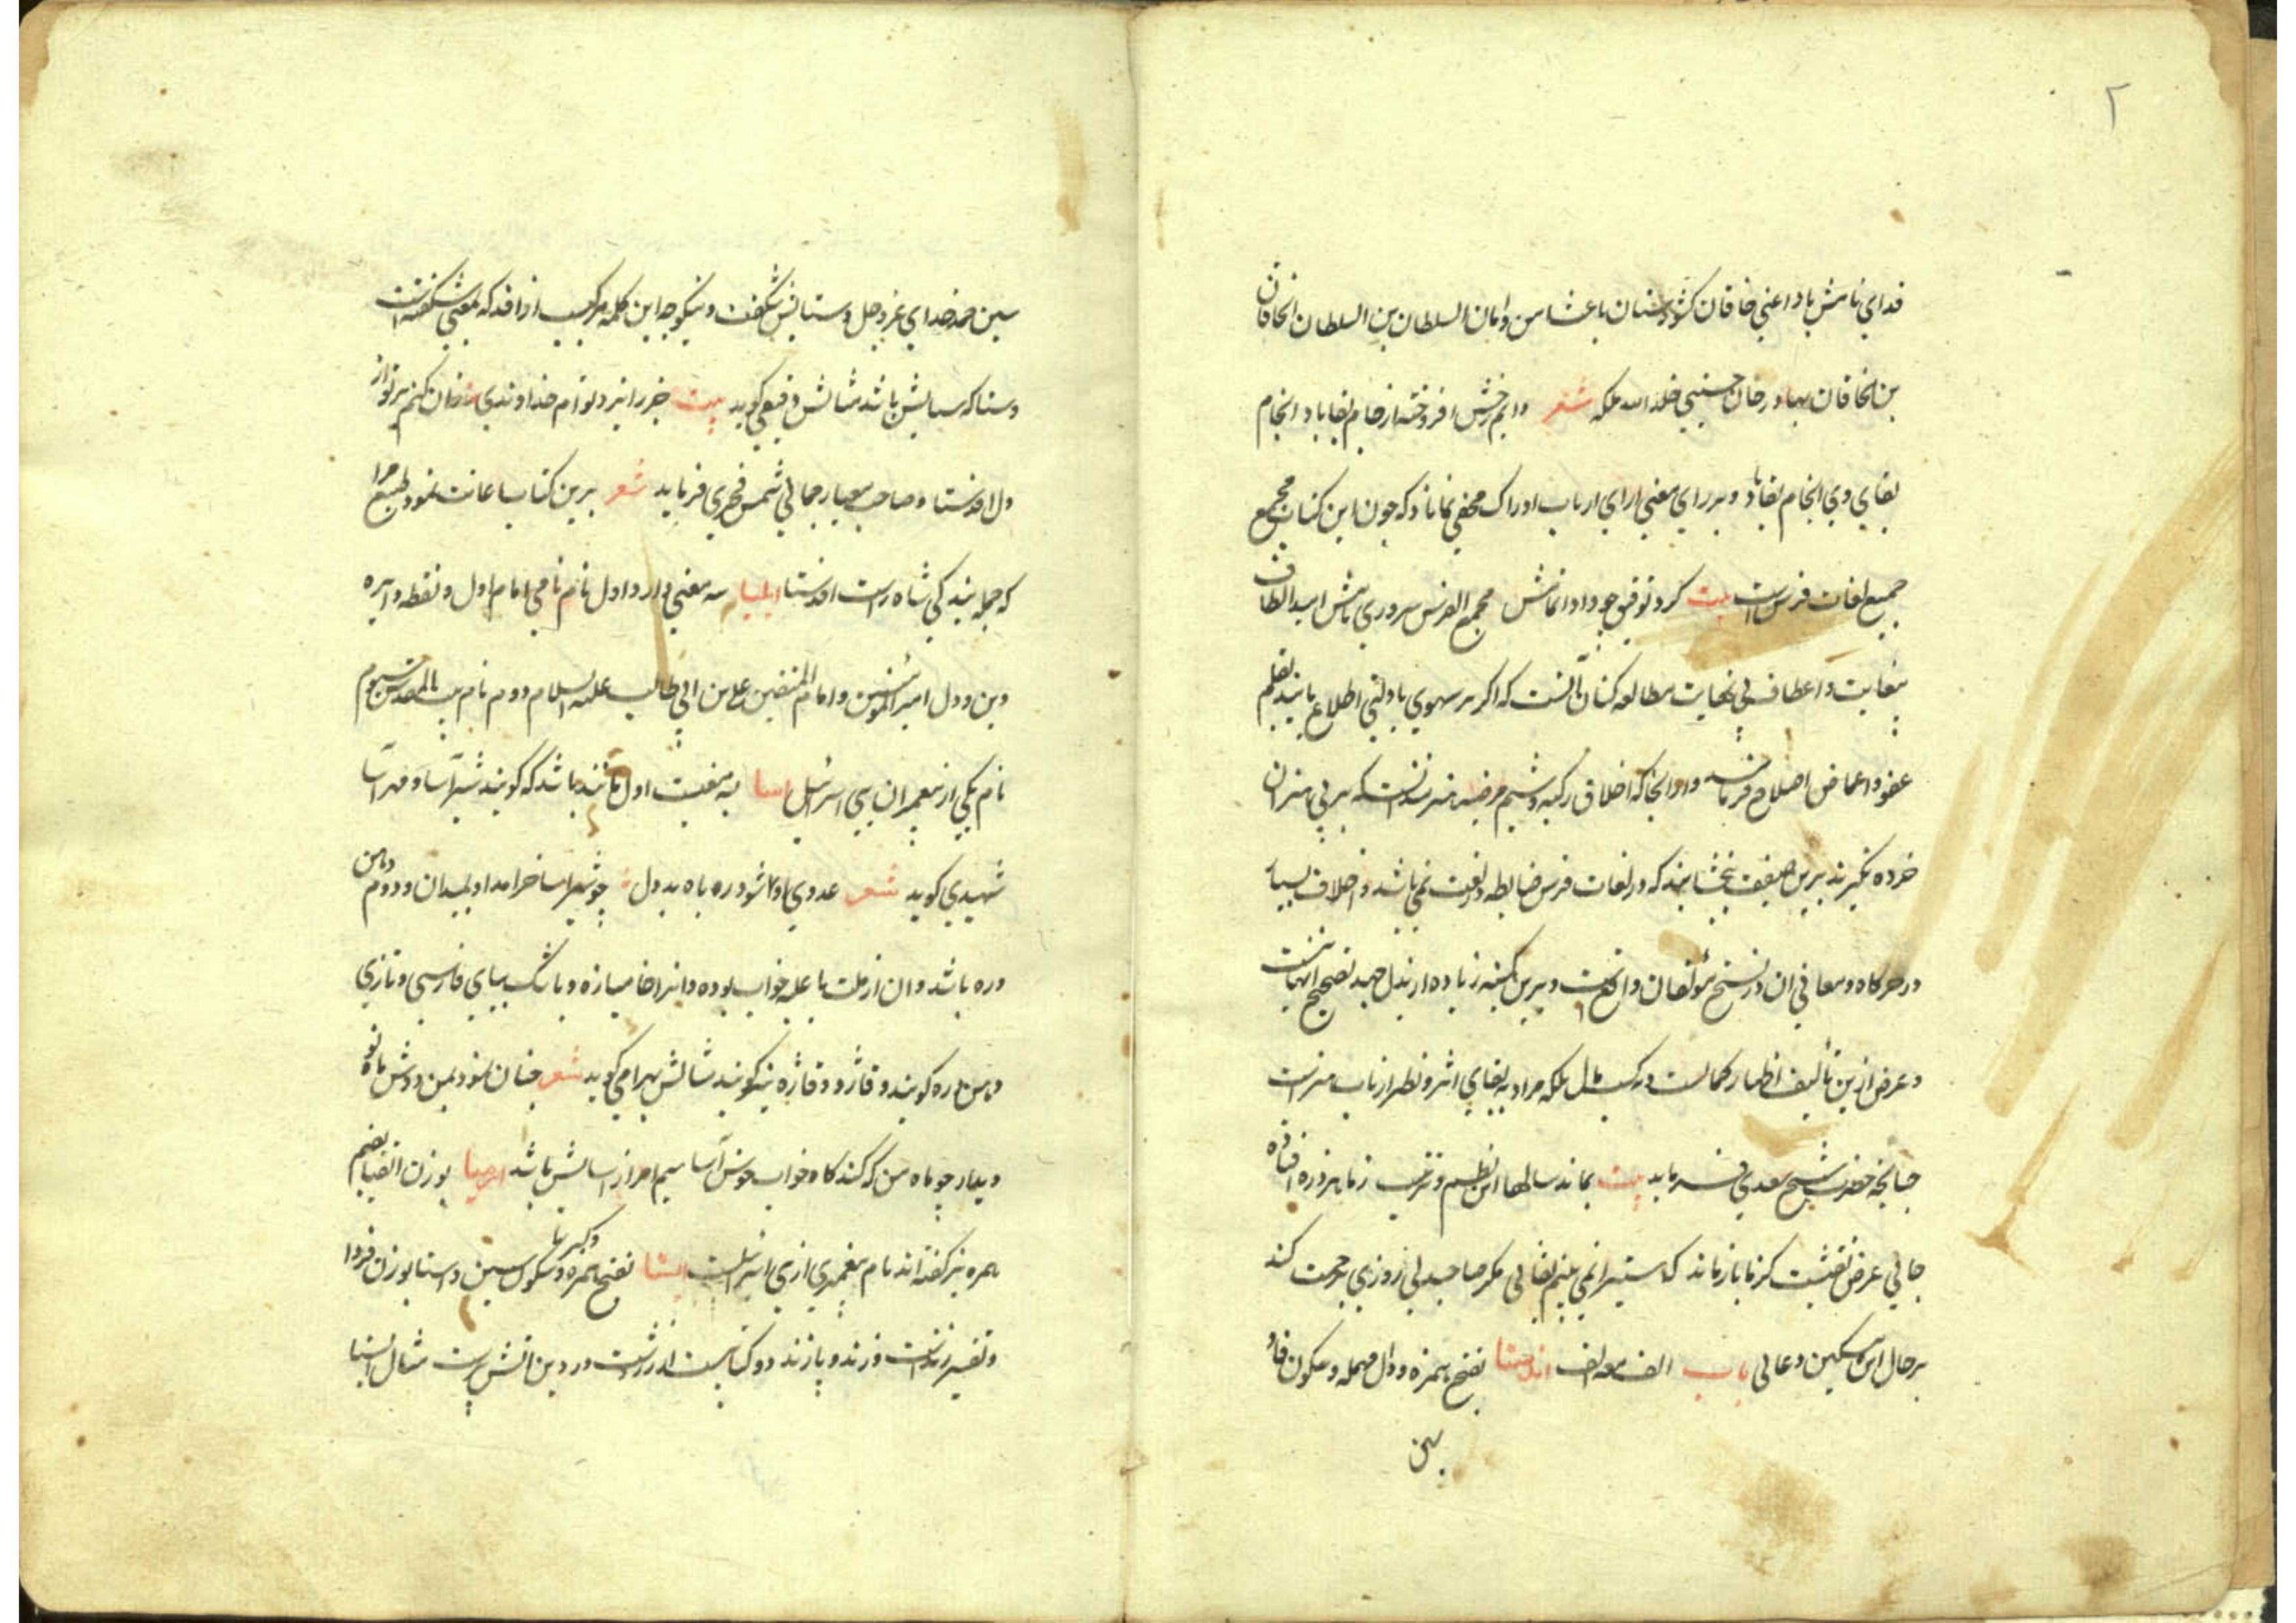 ۲
فدای نامش باد اعنی خاقان کشورستان باعث امن و امان السلطان بن السلطان الخاقان
بن الخاقان بهادر خان حسینی خلد الله ملکه شعر دایم رخش افروخته از جام لقا باد انجام
بقای وی انجام بقا باد و بر رای معنی ارای ارباب ادراک مخفی نماناد که چون این کتاب مجمع
جمیع لغات فرس است بیت کرد توفیق چو داد اتمامش مجمع الفرس سروری نامش امید الطاف
بیغایت و اعطاف بی نهایت مطالعه کنان آنست که اگر بر سهوی یا زلتی اطلاع یابند بقلم
عفو و اغماض اصلاح فرمایند و از انجا که اخلاق زکیه و شیم مرضیه هنرمندانست که بر بی هنران
خرده نگیرند برین ضعیف ببخشایند که در لغات فرس ضابطه در لغت نمی باشد و اختلاف بسیار
در حرکات و معانی ان در نسخ مؤلفان واقعست و برین کمینه زیاده از بذل جهد تصحیح انها نیست
و غرض ازین تألیف اظهار کمالست نه کسب مال بلکه مراد بقای اثر و نظر ارباب هنر است
چنانچه حضرت شیخ سعدی فرماید بیت بماند سالها این نظم و ترتیب ز ما هر ذره افتاده
جائی غرض نقشیست کز ما باز ماند که هستی را نمی بینم بقائی مگر صاحبدلی روزی برحمت کند
بر حال این مسکین دعائی باب الف مع الف اندستا بفتح همزه و دال مهمله و سکون فا و
سین
سین حمد خدای عز و جل و ستایش شگفت و نیکو چه این کلمه مرکب از افد که بمعنی شگفتست
و ستا که ستایش باشد مثالش دقیقی گوید بیت جز از ایزد توام خداوندی کنم از دل بتو بر
دل افدستا و صاحب معیار جمالی شمس فخری فرماید شعر برین کتاب اعانت نمود طبع مرا
که جمله بندگی شاه راست افدستا ایلیا سه معنی دارد اول نام نامی امام اول و نقطه دایره
دین و دول امیر المؤمنین و امام المتقین علی بن ابی طالب علیه السلام دوم نام بیت المقدس سیوم
نام یکی از پیغمبران بنی اسرائیل اسا به معنیست اول مانند باشد که گویند شیر آسا و مهر آسا
شهیدی گوید شعر عدوی او شود روباه بددل چو شیر اسا خرامد او بمیدان و دوم دهان
دره باشد و ان از علت یا غلبه خواب بوده و انرا خامیازه و باسک ببای فارسی و تازی
و دهن دره گویند و فاژ و فاژه نیز گویند مثالش بهرامی گوید شعر چنان نمود بمن دوش ماه نو
دیدار چو ماه من که کند گاه خواب خوش آسا سیم امر از اسایش باشد ارمیا بوزن انبیا بضم
همزه نیز گفته اند نام پیغمبری از بنی اسرائیلست استا بفتح همزه و کسر تا و سکون سین و استا بوزن فردا
و تفسیر زند است و زند و پازند دو کتابیست از زردشت در دین اتش پرست مثال استا